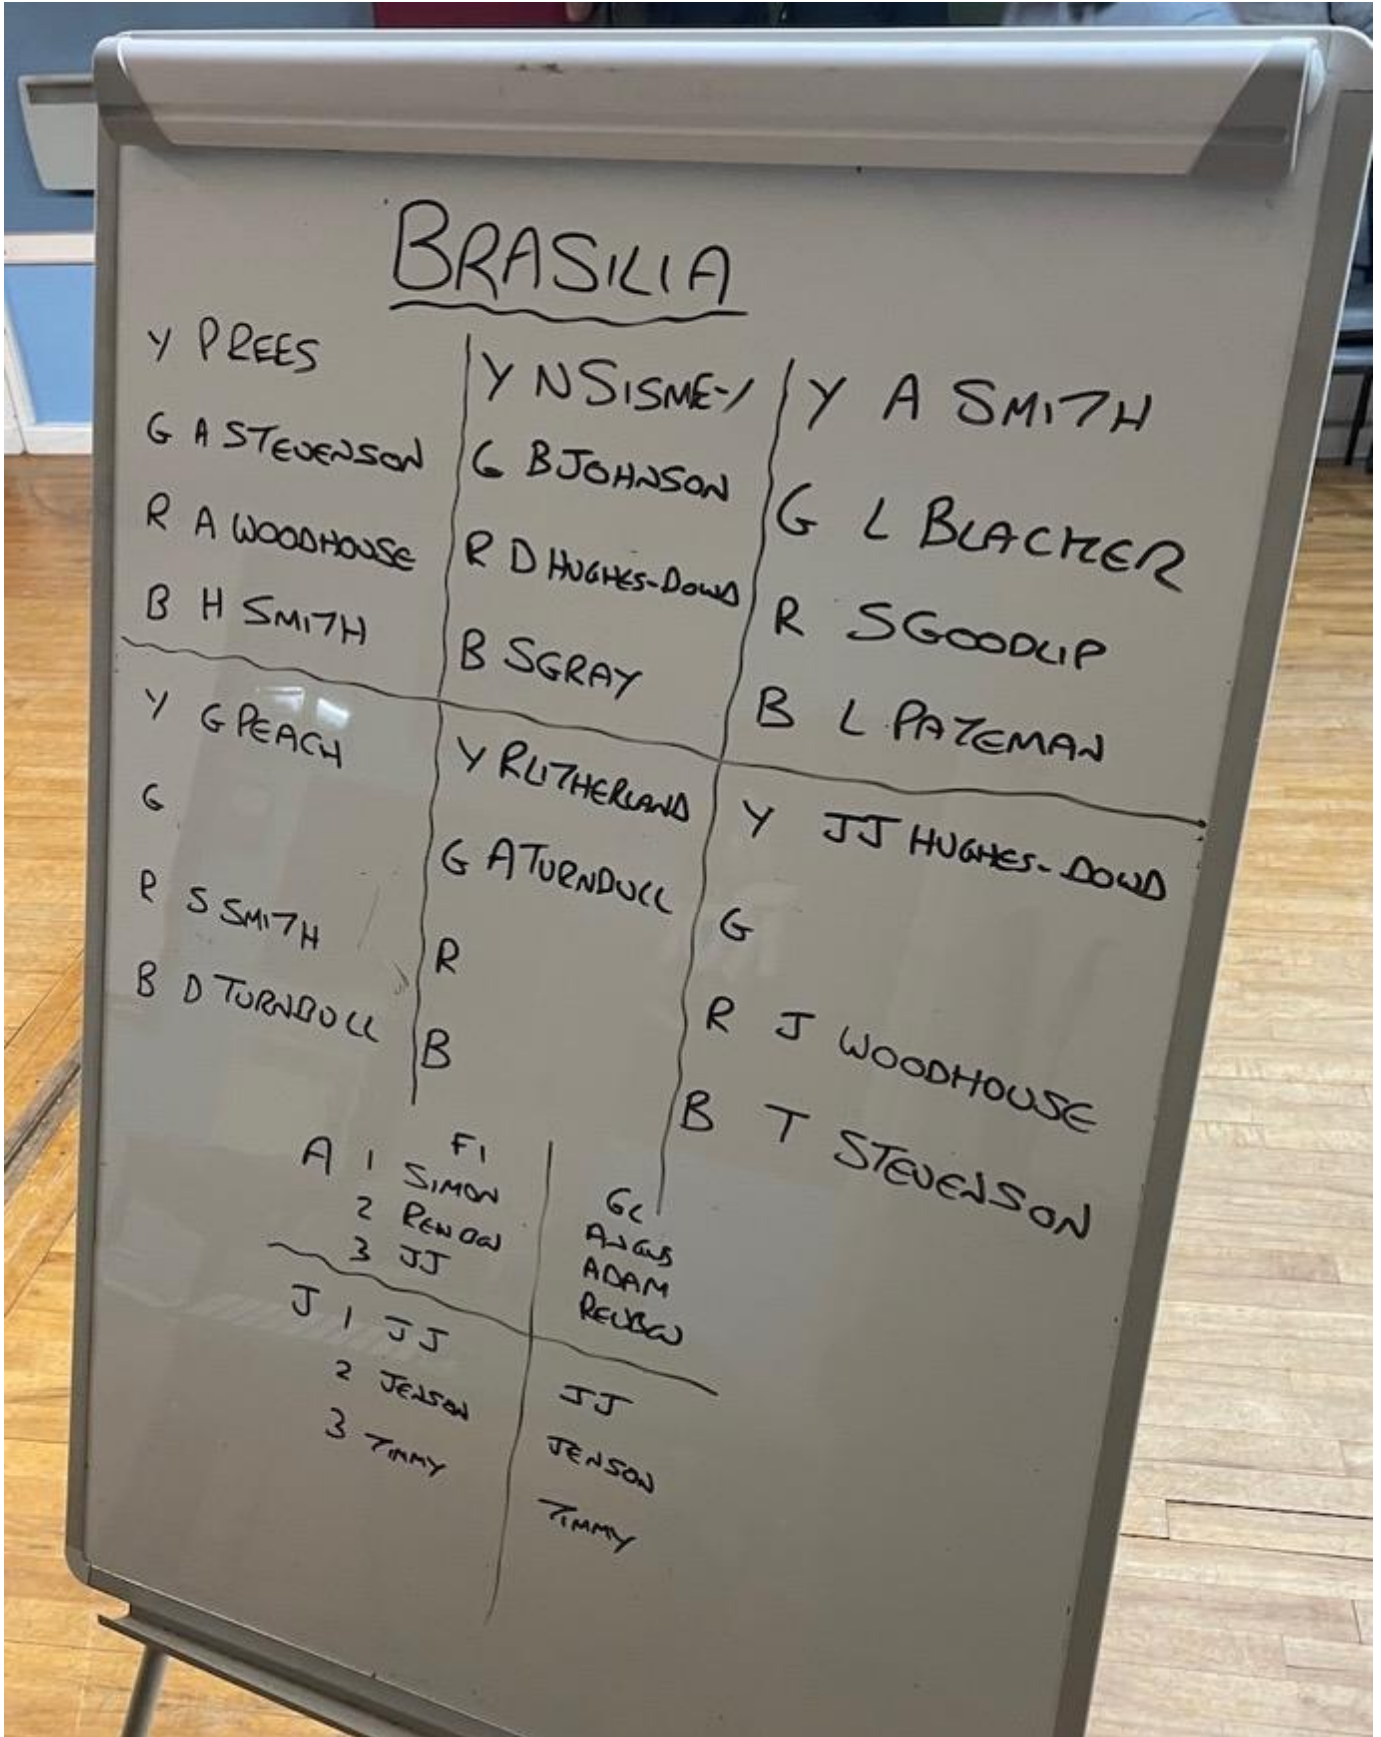 BRASILIA
Y P REES
G A STEVENSON
R A WOODHOUSE
B H SMITH
Y N SISMEY
G B JOHNSON
R D HUGHES-DOWD
B S GRAY
Y A SMITH
G L BLACKER
R S GOODLIP
B L PATEMAN
Y G PEACH
G
R S SMITH
B D TURNBULL
Y R LITHERLAND
G A TURNBULL
R
B
Y JJ HUGHES-DOWD
G
R J WOODHOUSE
B T STEVENSON
F1
A 1 SIMON
2
3 JJ
GC
ANGUS
ADAM
REUBEN
J 1 JJ
2 JENSON
3 TIMMY
JJ
JENSON
TIMMY